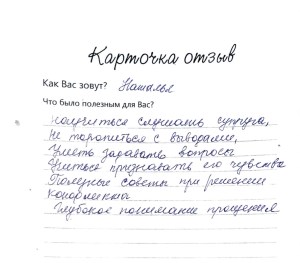 Карточка отзыв
Как Вас зовут? Наталья
Что было полезным для Вас?
научиться слушать супруга,
Не торопиться с выводами,
Уметь задавать вопросы
Учиться признавать его чувства
Полезные советы при решении
конфликта
Глубокое понимание прощения